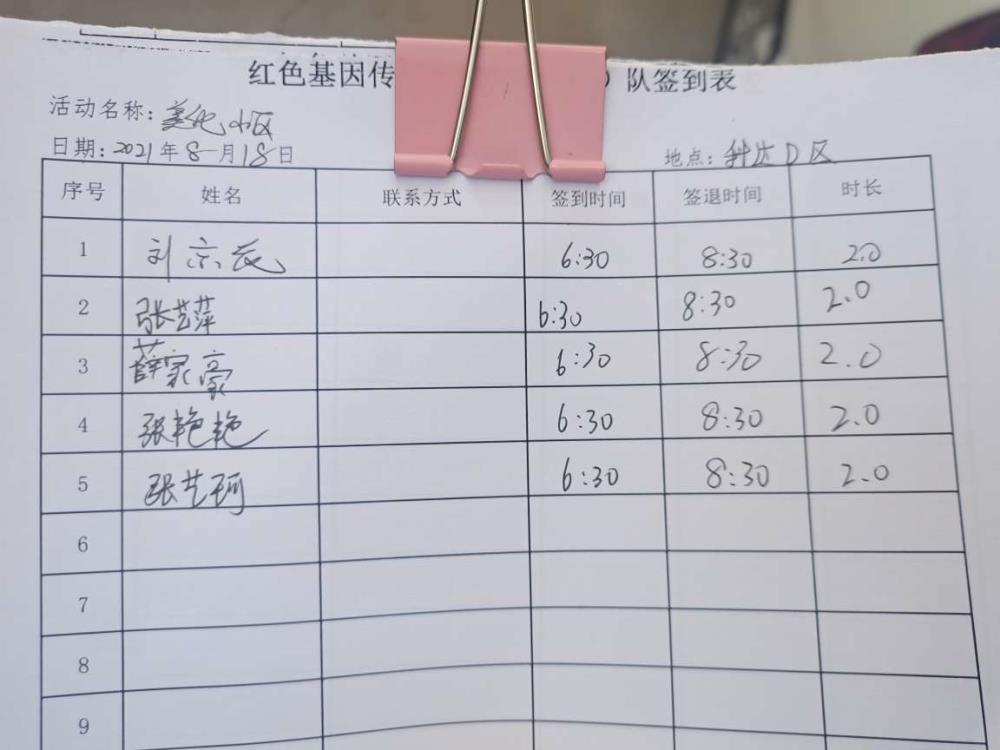 红色基因传 ）队签到表
活动名称：美化小区
日期：2021年8月18日 地点：科达D区
序号 姓名 联系方式 签到时间 签退时间 时长
1 刘宗辰 6:30 8:30 2.0
2 张艺萍 6:30 8:30 2.0
3 薛家豪 6:30 8:30 2.0
4 张艳艳 6:30 8:30 2.0
5 张艺珂 6:30 8:30 2.0
6
7
8
9